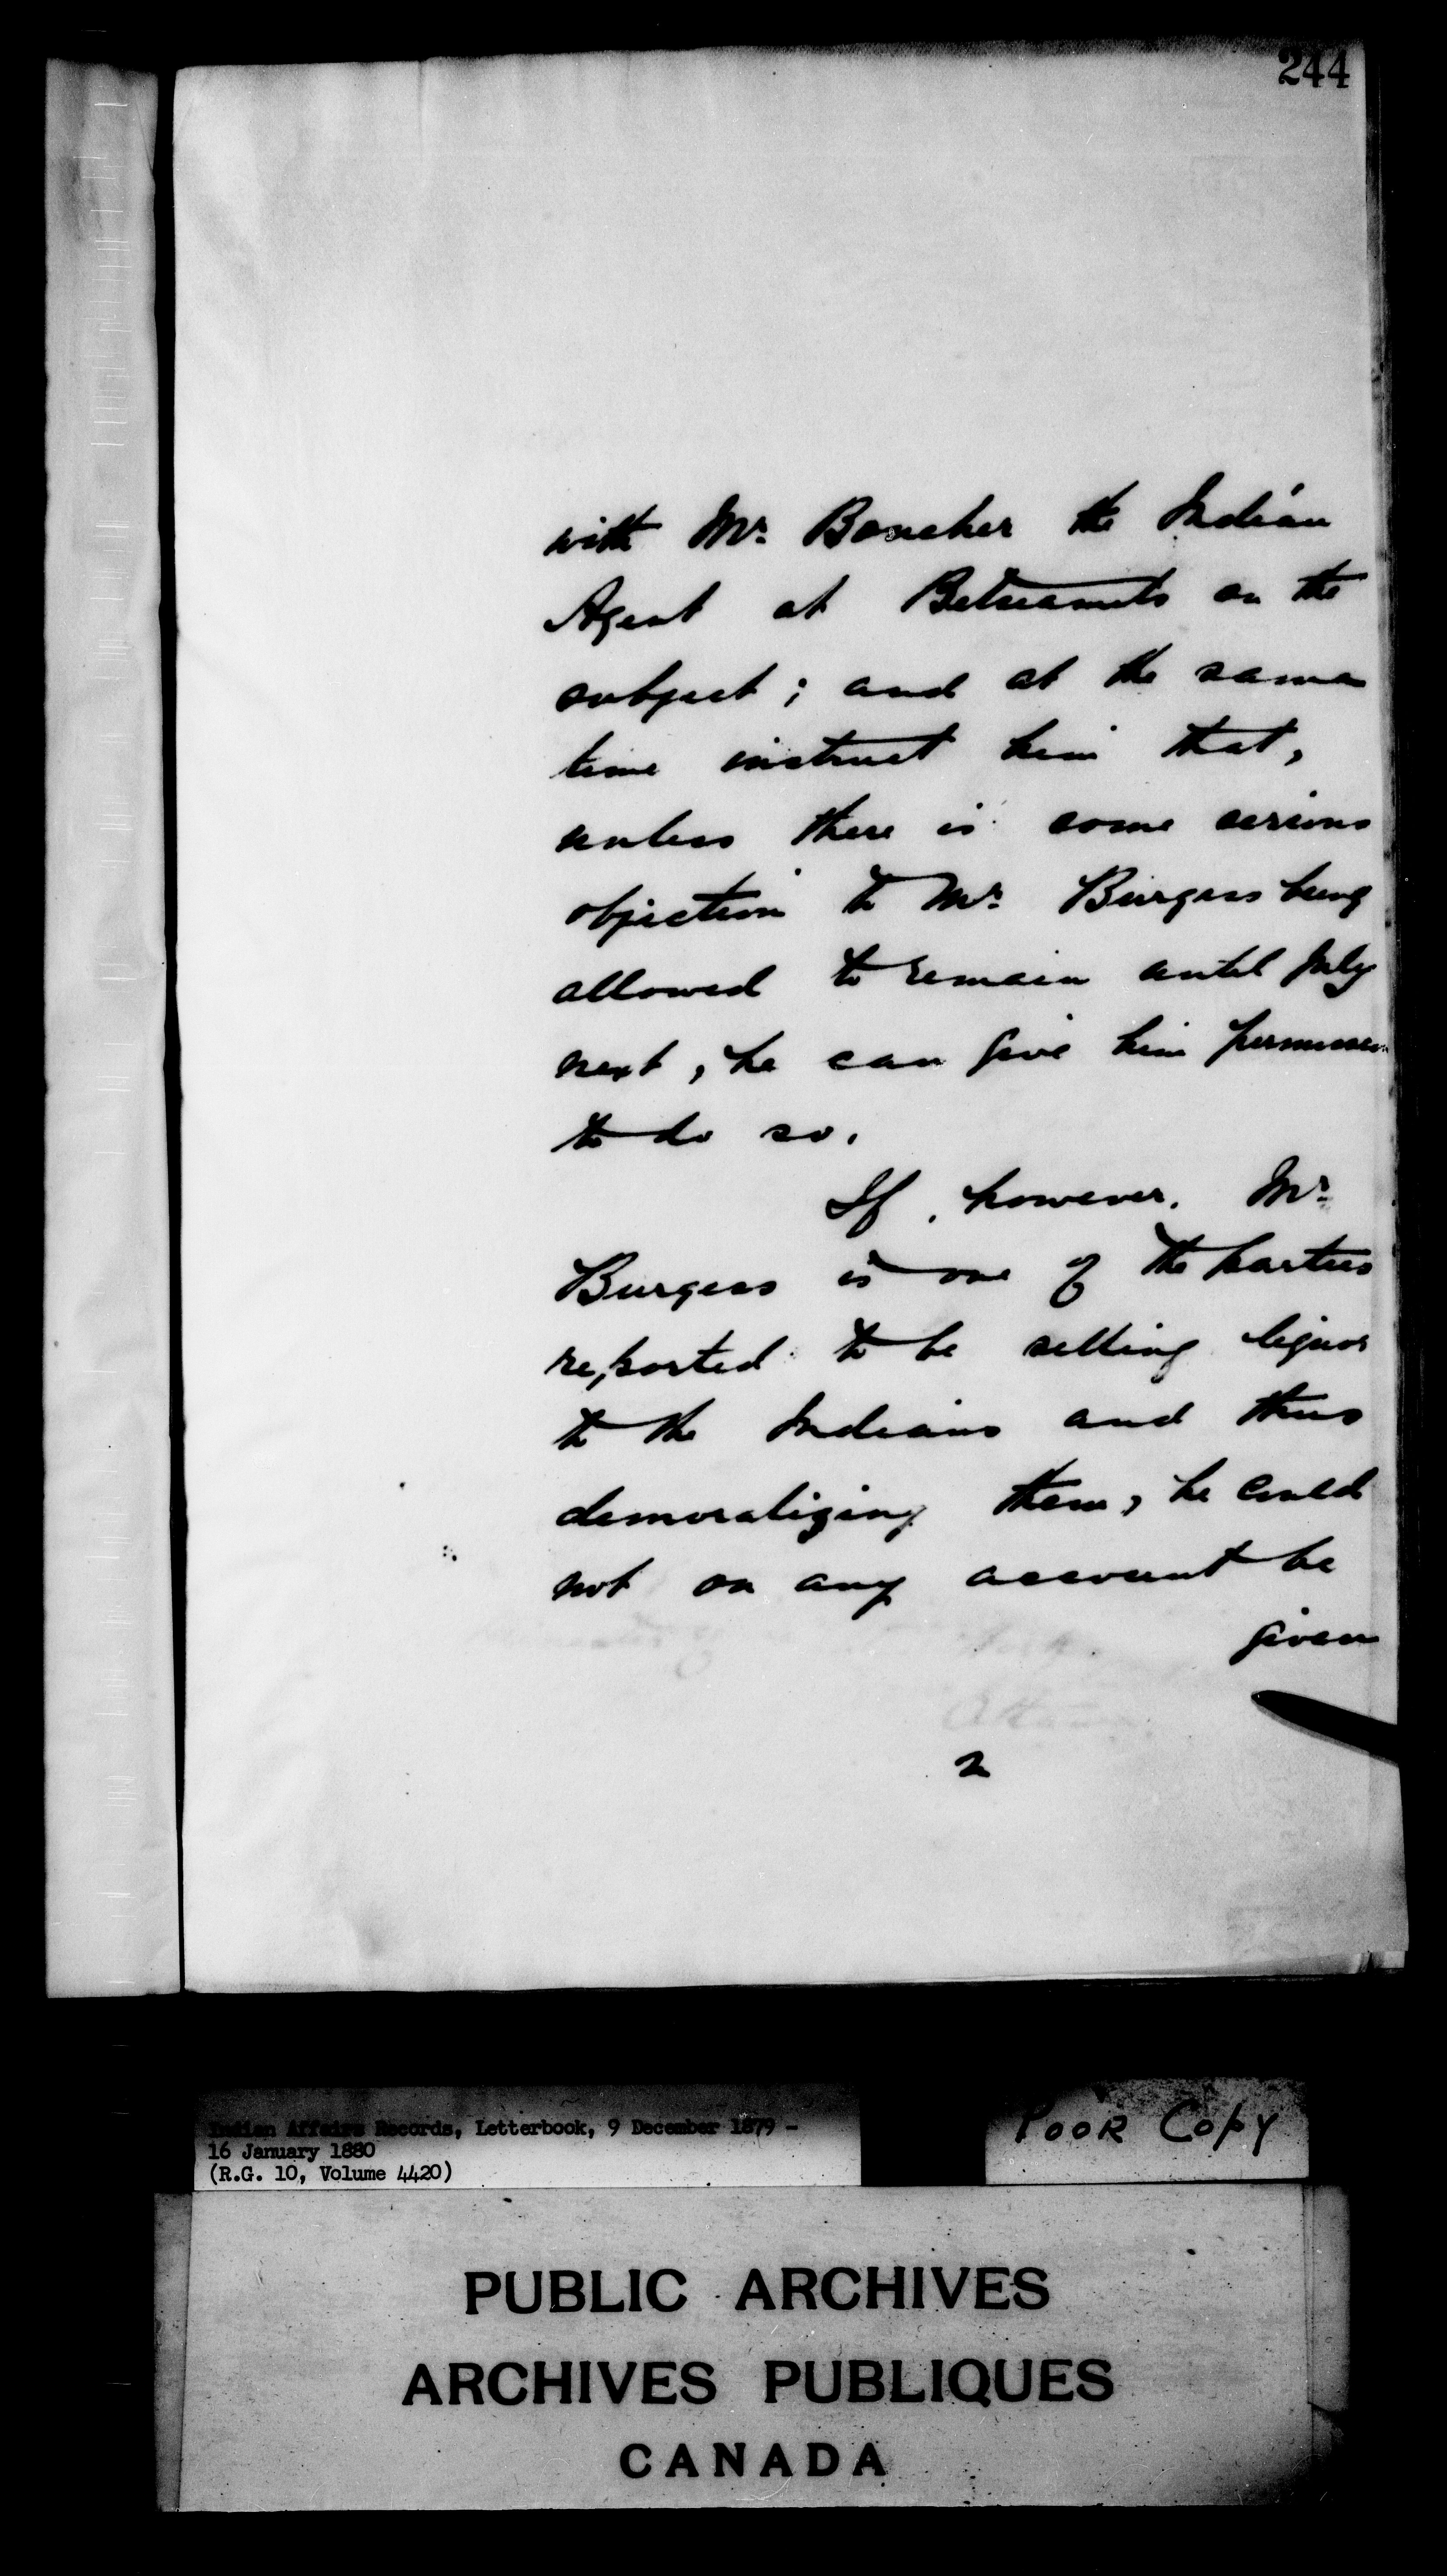 244
with Mr. Boucher the Indian
Agent at Betsiamits on the
subject; and at the same
time instruct him that,
unless there is some serious
objection to Mr. Burgess being
allowed to remain until July
next, he can give him permission
to do so.
If, however, Mr.
Burgess is one of the parties
reported to be selling liquor
to the Indians and thus
demoralizing them, he could
not on any account be
given
2
Indian Affairs Records, Letterbook, 9 December 1879 -
16 January 1880
(R.G. 10, Volume 4420)
POOR COPY
PUBLIC ARCHIVES
ARCHIVES PUBLIQUES
CANADA